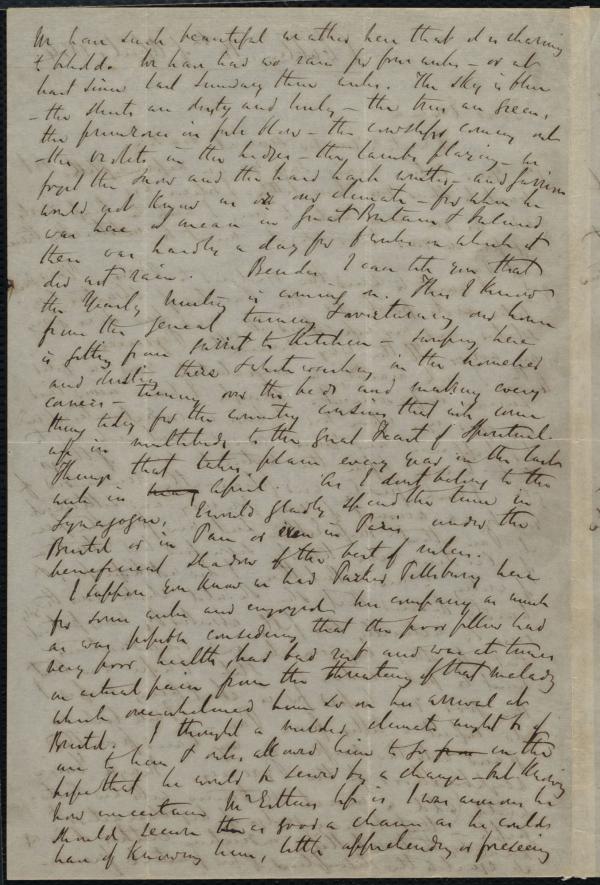 We have such beautiful weather here that it is charming
& blissful. We have had no rain for four weeks - or at
least since last Sunday three weeks. The sky is blue
- the streets are dusty and lively - the trees are green,
the primroses in full blow - the cowslips coming out
- the violets in the hedges - the lambs playing - we
forget the snow and the hard harsh winter - and
would not know our old climate - for when he
was here I mean in Great Britain & Ireland
there was hardly a day for weeks in which it
did not rain. Besides I can tell you that
the Yearly Meeting is coming on. This I know
from the general turning topsieturvey our house
is getting from garret to kitchen - sweeping here
and dusting there whitewashing in the
corners - turning over the beds and making every
thing tidy for the country cousins that will come
up in multitudes to the great Feast of Spiritual
Things that takes place every year in the last
week in April. As I don't belong to the
Synagogue, I would gladly spend the time in
Bristol or in Pau or even in Paris under the
beneficent shadow of the best of rulers.
I suppose you know we had Parker Pillsbury here
for some weeks and enjoyed his company as much
as was possible considering that the poor fellow had
very poor health, had bad rest and was at times
in actual pain from the threatening of that malady
which overwhelmed him so on his arrival at
Bristol. I thought a milder climate might be of
use to him & only allowed him to go in the
hope that he would be served by a change - but knowing
how uncertain Mr Estlin's life is, I was anxious he
should secure as good a chance as he could
have of knowing him, little apprehending or foreseeing